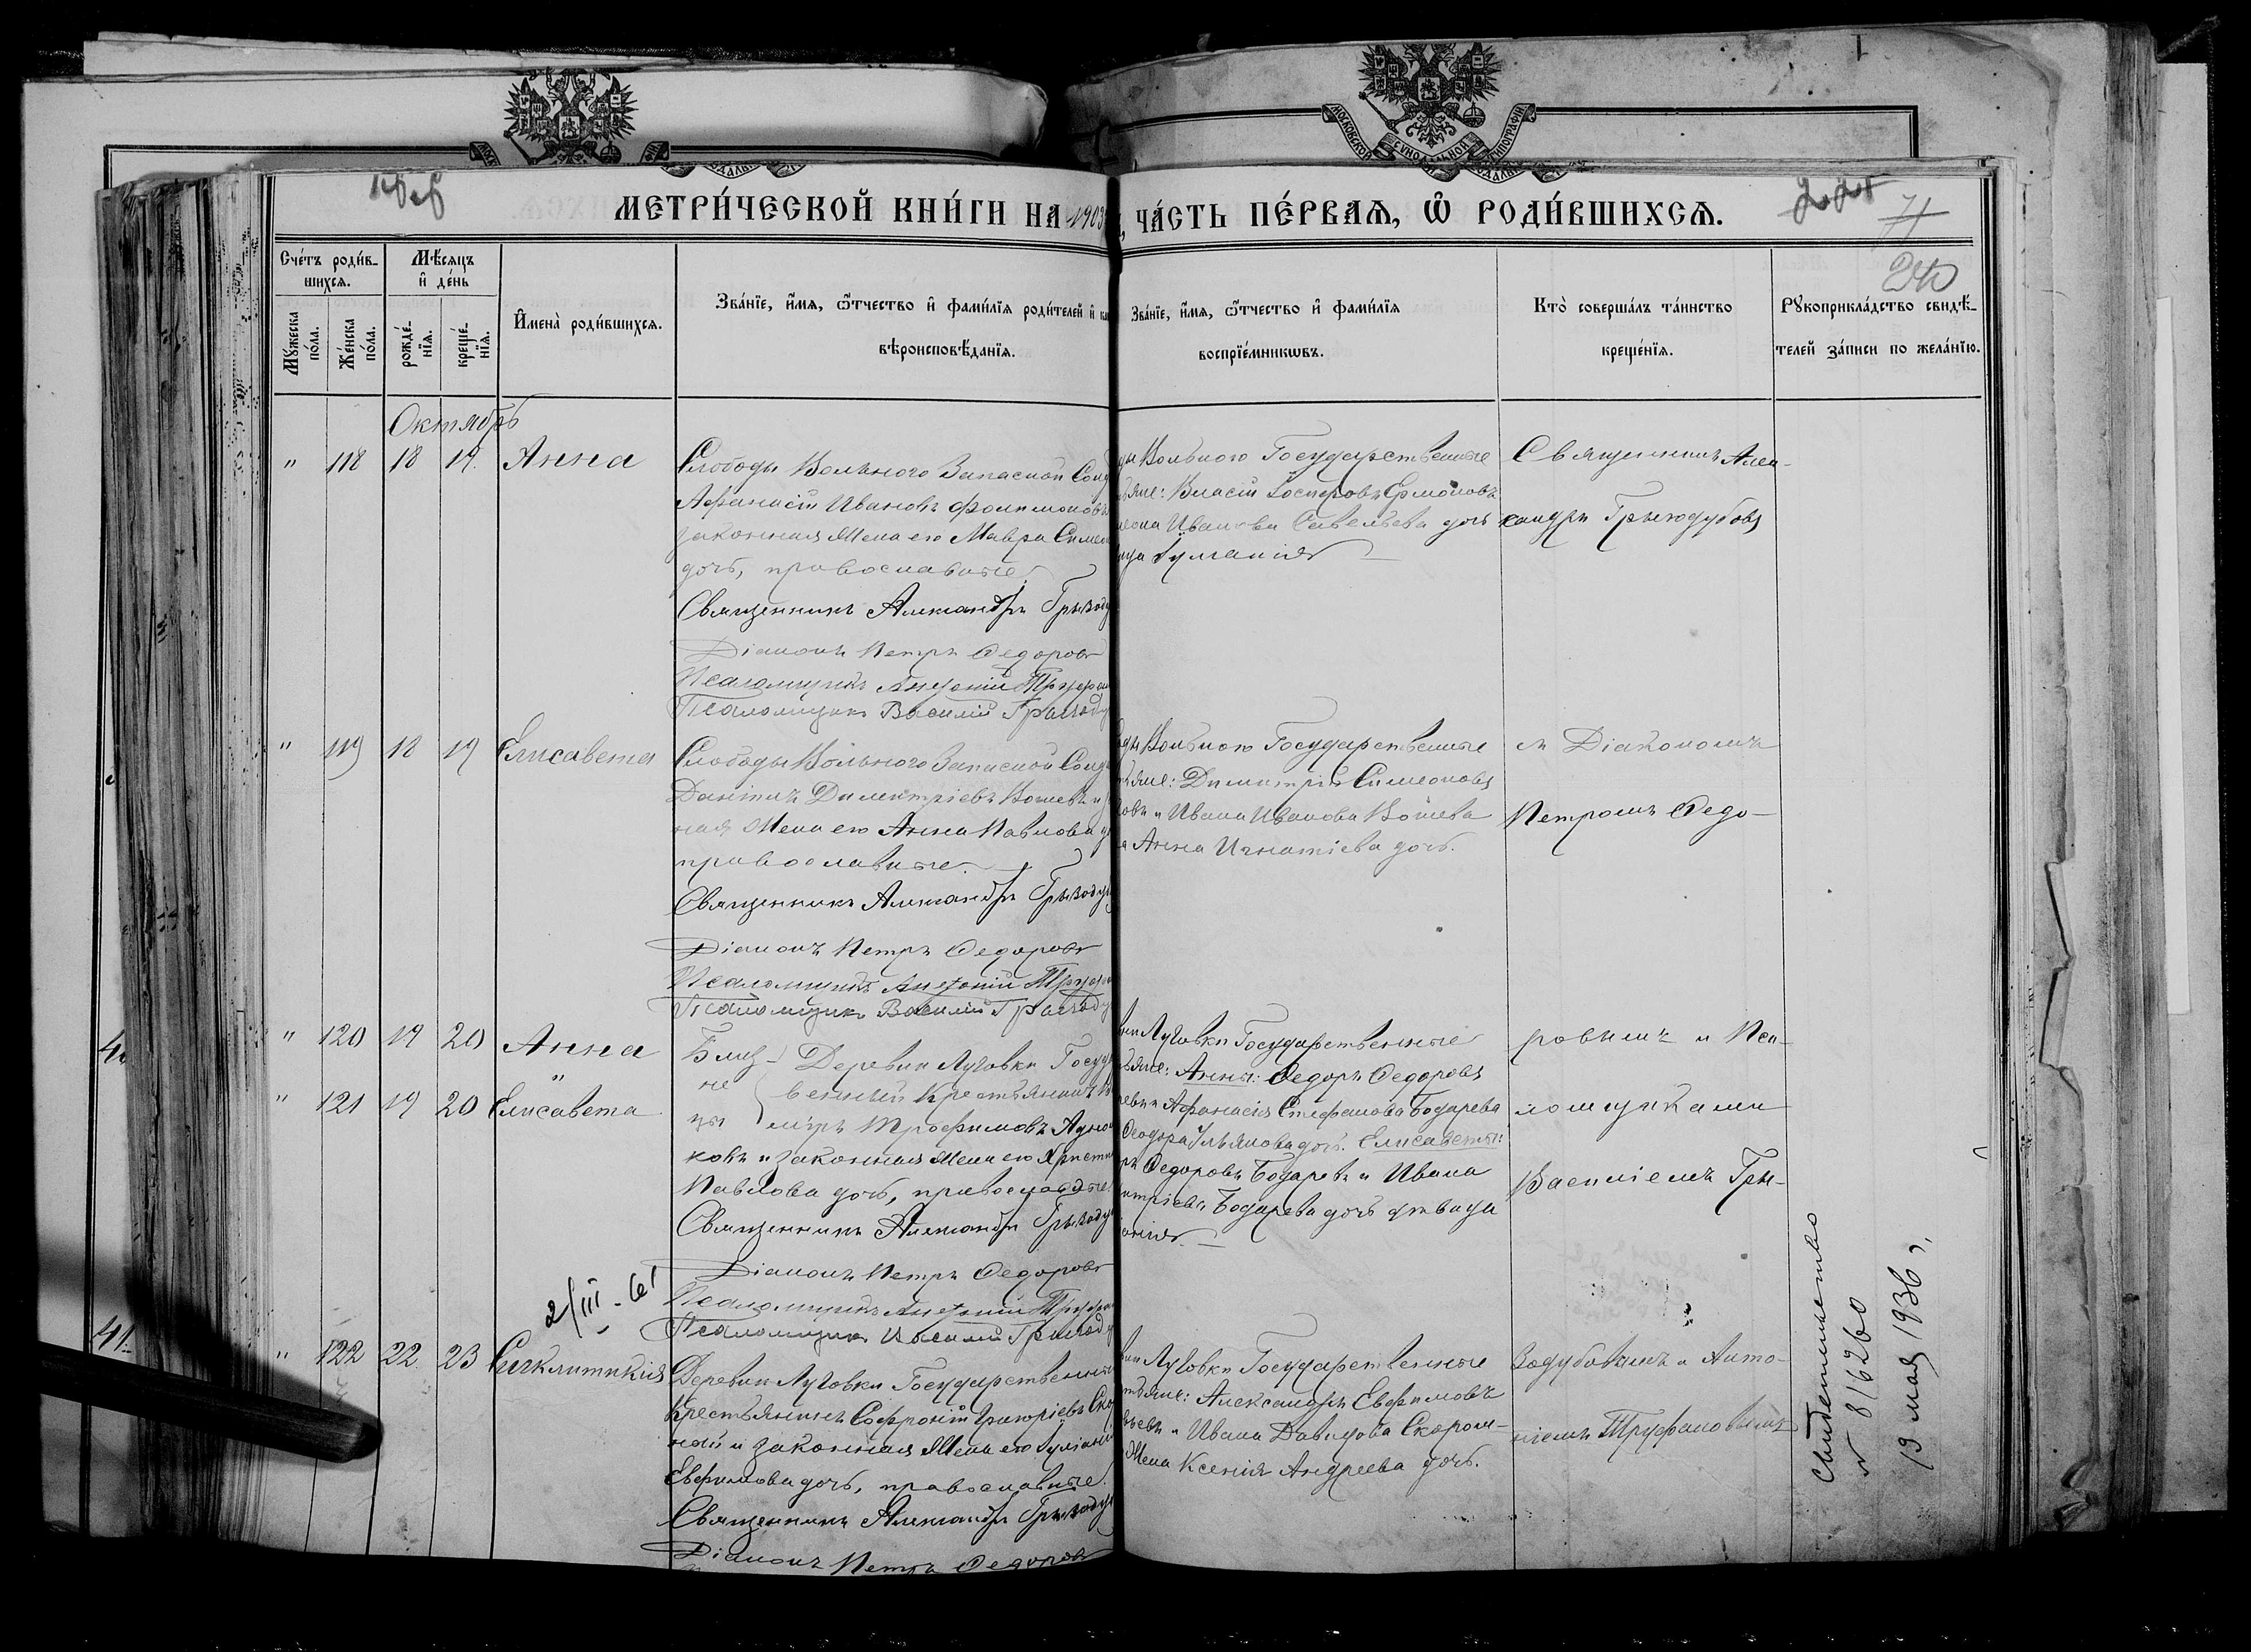 МЕТРИ́ЧЕСКОЙ КНИ́ГИ НА 1903
, ЧА́СТЬ ПЕ́РВАѦ, Ѿ РОДИ́ВШИХСѦ.
71
240
МОСКОВСКОЙ СѴНОДАЛЬНОЙ ТИПОГРАФІИ
Сче́тъ роди́в-
шихсѧ.
Мꙋжеска по́ла.
Же́нска по́ла.
Мѣ́сѧцъ и де́нь
рожде́-нїѧ.
креще́-нїѧ.
Имена̀ роди́вшихсѧ.
Зва́нїе, и́мѧ, ѻ́тчество и фами́лїѧ роди́телей и
вѣроисповѣ́данїѧ.
Зва́нїе, и́мѧ, ѻ́тчество и фами́лїѧ
воспрїе́мникѡвъ.
Кто̀ соверша́лъ та́инство
креще́нїѧ.
Рꙋкоприкла́дство свидѣ́-
телей за́писи по жела́нїю.
Октябрь
" 118 18 19. Анна
Слободы Вольного Запасной Солд
Афанасій Ивановъ Филимоновъ
законная Жена его Мавра Симео
дочь, православные.
Священникъ Александръ Грызоду
Діаконъ Петръ Федоровъ
Псаломщикъ Антоній Труфан
Псаломщикъ Василій Грызоду
ды Вольного Государственные
Власій Іосифовъ Ермоловъ
Иванова Савельева дочь
Священникъ Алек-
сандръ Грызодубовъ
" 119 18 19 Елисавета
Слободы Вольного Запасной Солд
Даніилъ Димитріевъ Кошевъ и
ная Жена его Анна Павлова д
православные.
Священникъ Александръ Грызоду
Діаконъ Петръ Федоровъ
Псаломщикъ Антоній Труфан
Псаломщикъ Василій Грызоду
ды Вольного Государственные
яне: Димитрій Симеоновъ
овъ и Ивана Иванова Кошева
Анна Игнатіева дочь.
съ Діакономъ
Петромъ Федо-
" 120 19 20 Анна
" 121 19 20 Елисавета
Близ-
не
цы
Деревни Луговки Госуд
венный Крестьянинъ
міръ Трофимовъ
ковъ и законная Жена его Христи
Павлова дочь, православные
Священникъ Александръ Грызоду
Діаконъ Петръ Федоровъ
Псаломщикъ Антоній Труфан
Псаломщикъ Василій Грызоду
Луговки Государственные
яне: Анны: Федоръ Федоровъ
Афанасія Стефанова Бодарева
Феодора Ульянова дочь. Елисаветы:
Федоровъ Бодаревъ и Ивана
итріева Бодарева дочь
ровымъ и Пса-
ломщиками
Василіемъ Гры-
2/III-61
" 122 22. 23 Сигклитикія
Деревни Луговки Государственный
Крестьянинъ Софроній Григоріевъ Ско
ной и законная Жена его
Евфимова дочь, православные.
Священникъ Александръ Грызоду
Діаконъ Петръ Федоровъ
Луговки Государственные
яне: Александръ Евфимовъ
и Ивана Давидова Скором-
Жена Ксенія Андреева дочь.
зодубовымъ и Анто-
ніемъ Труфановымъ
Свидетельство
№ 816260
19 мая 1936 г.
4
41.